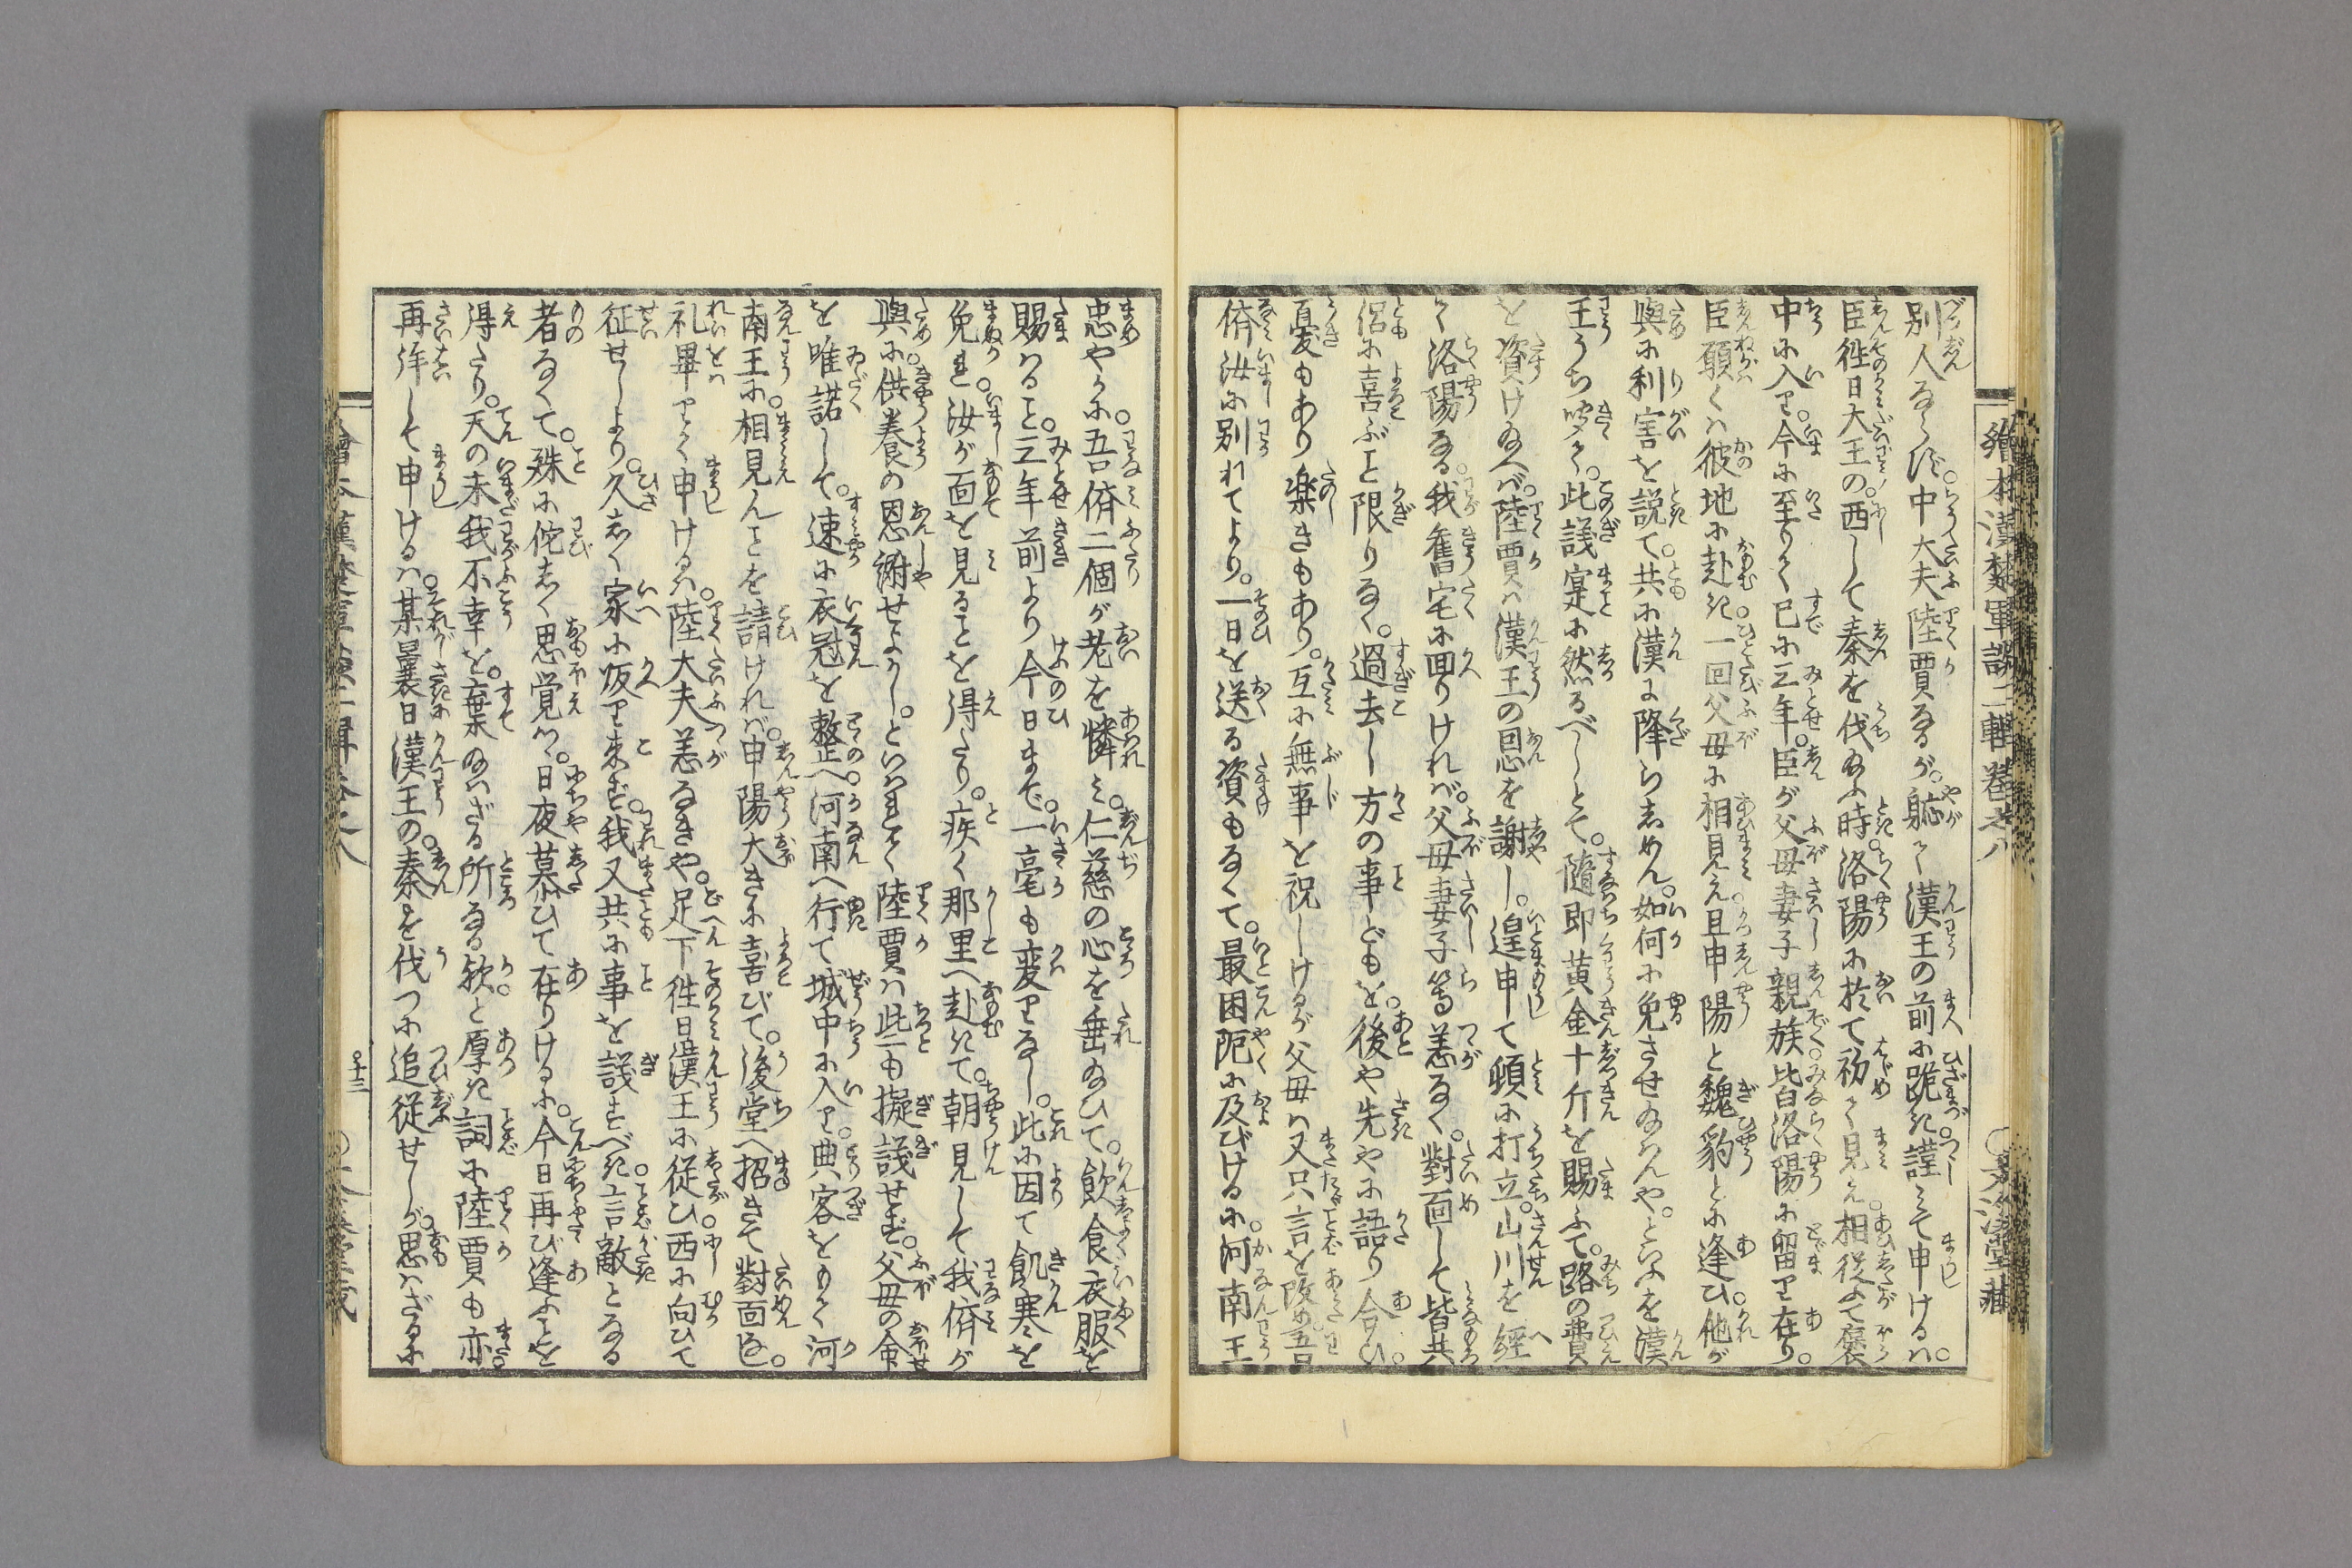 繪本漢楚軍談二輯巻之八
別人ならず。中大夫陸賈なるが。軈て漢王の前に跪き謹て申けるハ。
臣徃日大王の西して秦を伐給ふ時。洛陽に於て初て見え相従て褒
中に入り。今に至りて已に三年。臣が父母妻子親族皆洛陽に留り在り。
臣願くハ彼地に赴き一回父母に相見え且申陽と魏豹とに逢ひ。他が
與に利害を説て。共に漢に降らしめん。如何に免させ給んや。といふを漢
王うち咲て。此議寔に然るべしとて。隨即黄金十斤を賜ふて。路の費
を資け給へバ。陸賈ハ漢王の恩を謝し。遑申て頓に打立。山川を經
て洛陽なる。我舊宅に囬りけれバ。父母妻子等恙なく。對面して皆共
侶に喜ぶこと限りなく。過去し方の事どもを。後や先やに語り合ひ。
憂もあり樂きもあり。互に無事を祝しけるが父母ハ又只言を改め吾
儕汝に別れてより。一日を送る資もなくて。最困阨に及びける。に河南王
忠やかに。吾儕二個が老を憐ミ。仁慈の心を垂給ひて。飲食衣服を
賜ハること。三年前より今日まで。一毫も変りなし。此に因て飢寒を
免れ。汝が面を見ることを得たり。疾く那里へ赴きて。朝見して我儕が
與に。供養の恩謝せよかし。といはれて陸賈ハ些も擬議せず。父母の命
を唯諾して。速に衣冠を整へ。河南へ行て城中に入り。典客をもて河
南王に。相見んことを請けれバ。申陽大きに喜びて。後堂へ招きて對面し。
礼畢りて申けるハ。陸大夫恙なきや。足下徃日漢王に従ひ西に向ひて
征せしより。久しく家に皈り来ず。我又共に事を議すべき言敵となる
者なくて。殊に侘しく思覚つ。日夜慕ひて在りけるに。今日再び逢ふことを
得たり。天の未我不幸を。棄給ハざる所なる歟と厚き詞に陸賈も亦。
再拝して申けるハ。某曩日漢王の。秦を伐つに追従せしが。思ハざるに